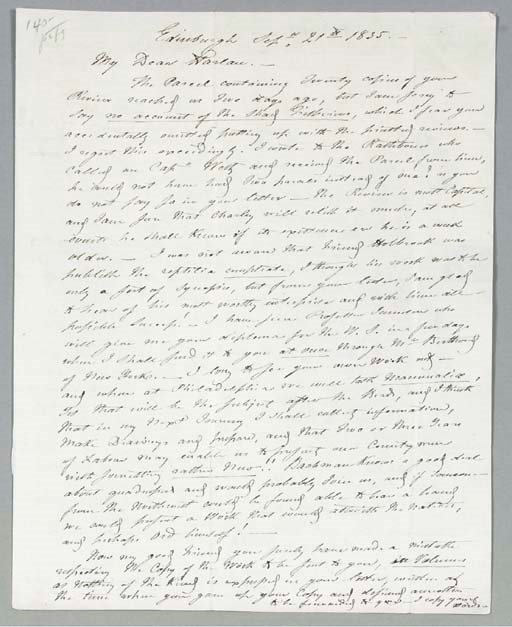 140
Edinburgh Sepr. 21st 1835.—
My Dear Harlan.—
The Parcel containing Twenty copies of your
Review reached us Two days ago, but I am sorry to
say no account of the Skull, which I fear you
accidentally omitted putting up with the printed reviews.—
I regret this exceedingly. I wrote to the Rathbones who
called on Capn. and received the Parcel from him,
he could not have had Two parcels instead of one? as you
do not say so in your letter — The Review is most Capital,
and I am sure that Charley will relish it much, at all
events he shall know of its existence as he is a week
older.— I was not aware that friend Holbrook was
to publish the reptilia complete, I thought his work was to be
only a sort of Synopsis, but from your letter, I am glad
to hear of his most worthy enterprise and wish him all
possible success!— I have seen Professor Jameson who
will give me your diploma for the W. S. in a few days
when I shall send it to you at once through Mr.
of New York.— I long to see your own Work out —
and when at Philadelphia we will talk Mammalia!
for that will be the subject after the Birds, and I think
that in my Next Journey I shall collect information,
make Drawings and prepare, and that Two or Three Years
of Labour may enable us to present our Countrymen
with something rather New!! Bachman knows a good deal
about quadrupeds and would probably join us, and if someone
from the Northwest could be found able to lean a hand
we could present a Work that would astonish the Natives,
and perhaps Old himself!—
Now my good friend you surely have made a mistake
respecting the Copy of the Work to be sent to you, in Volumes
as nothing of the kind is expressed in your letter, written at
the time when you gave up your Copy and desired another
to be forwarded to you. I copy your
words.—